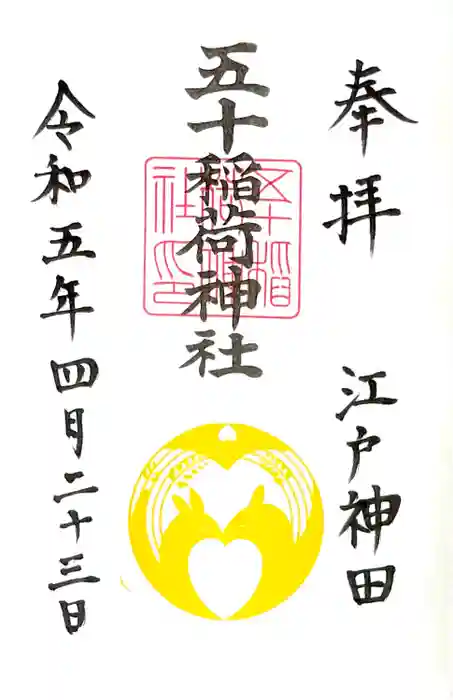 奉拝
江戸神田
五十稲荷神社
令和五年四月二十三日